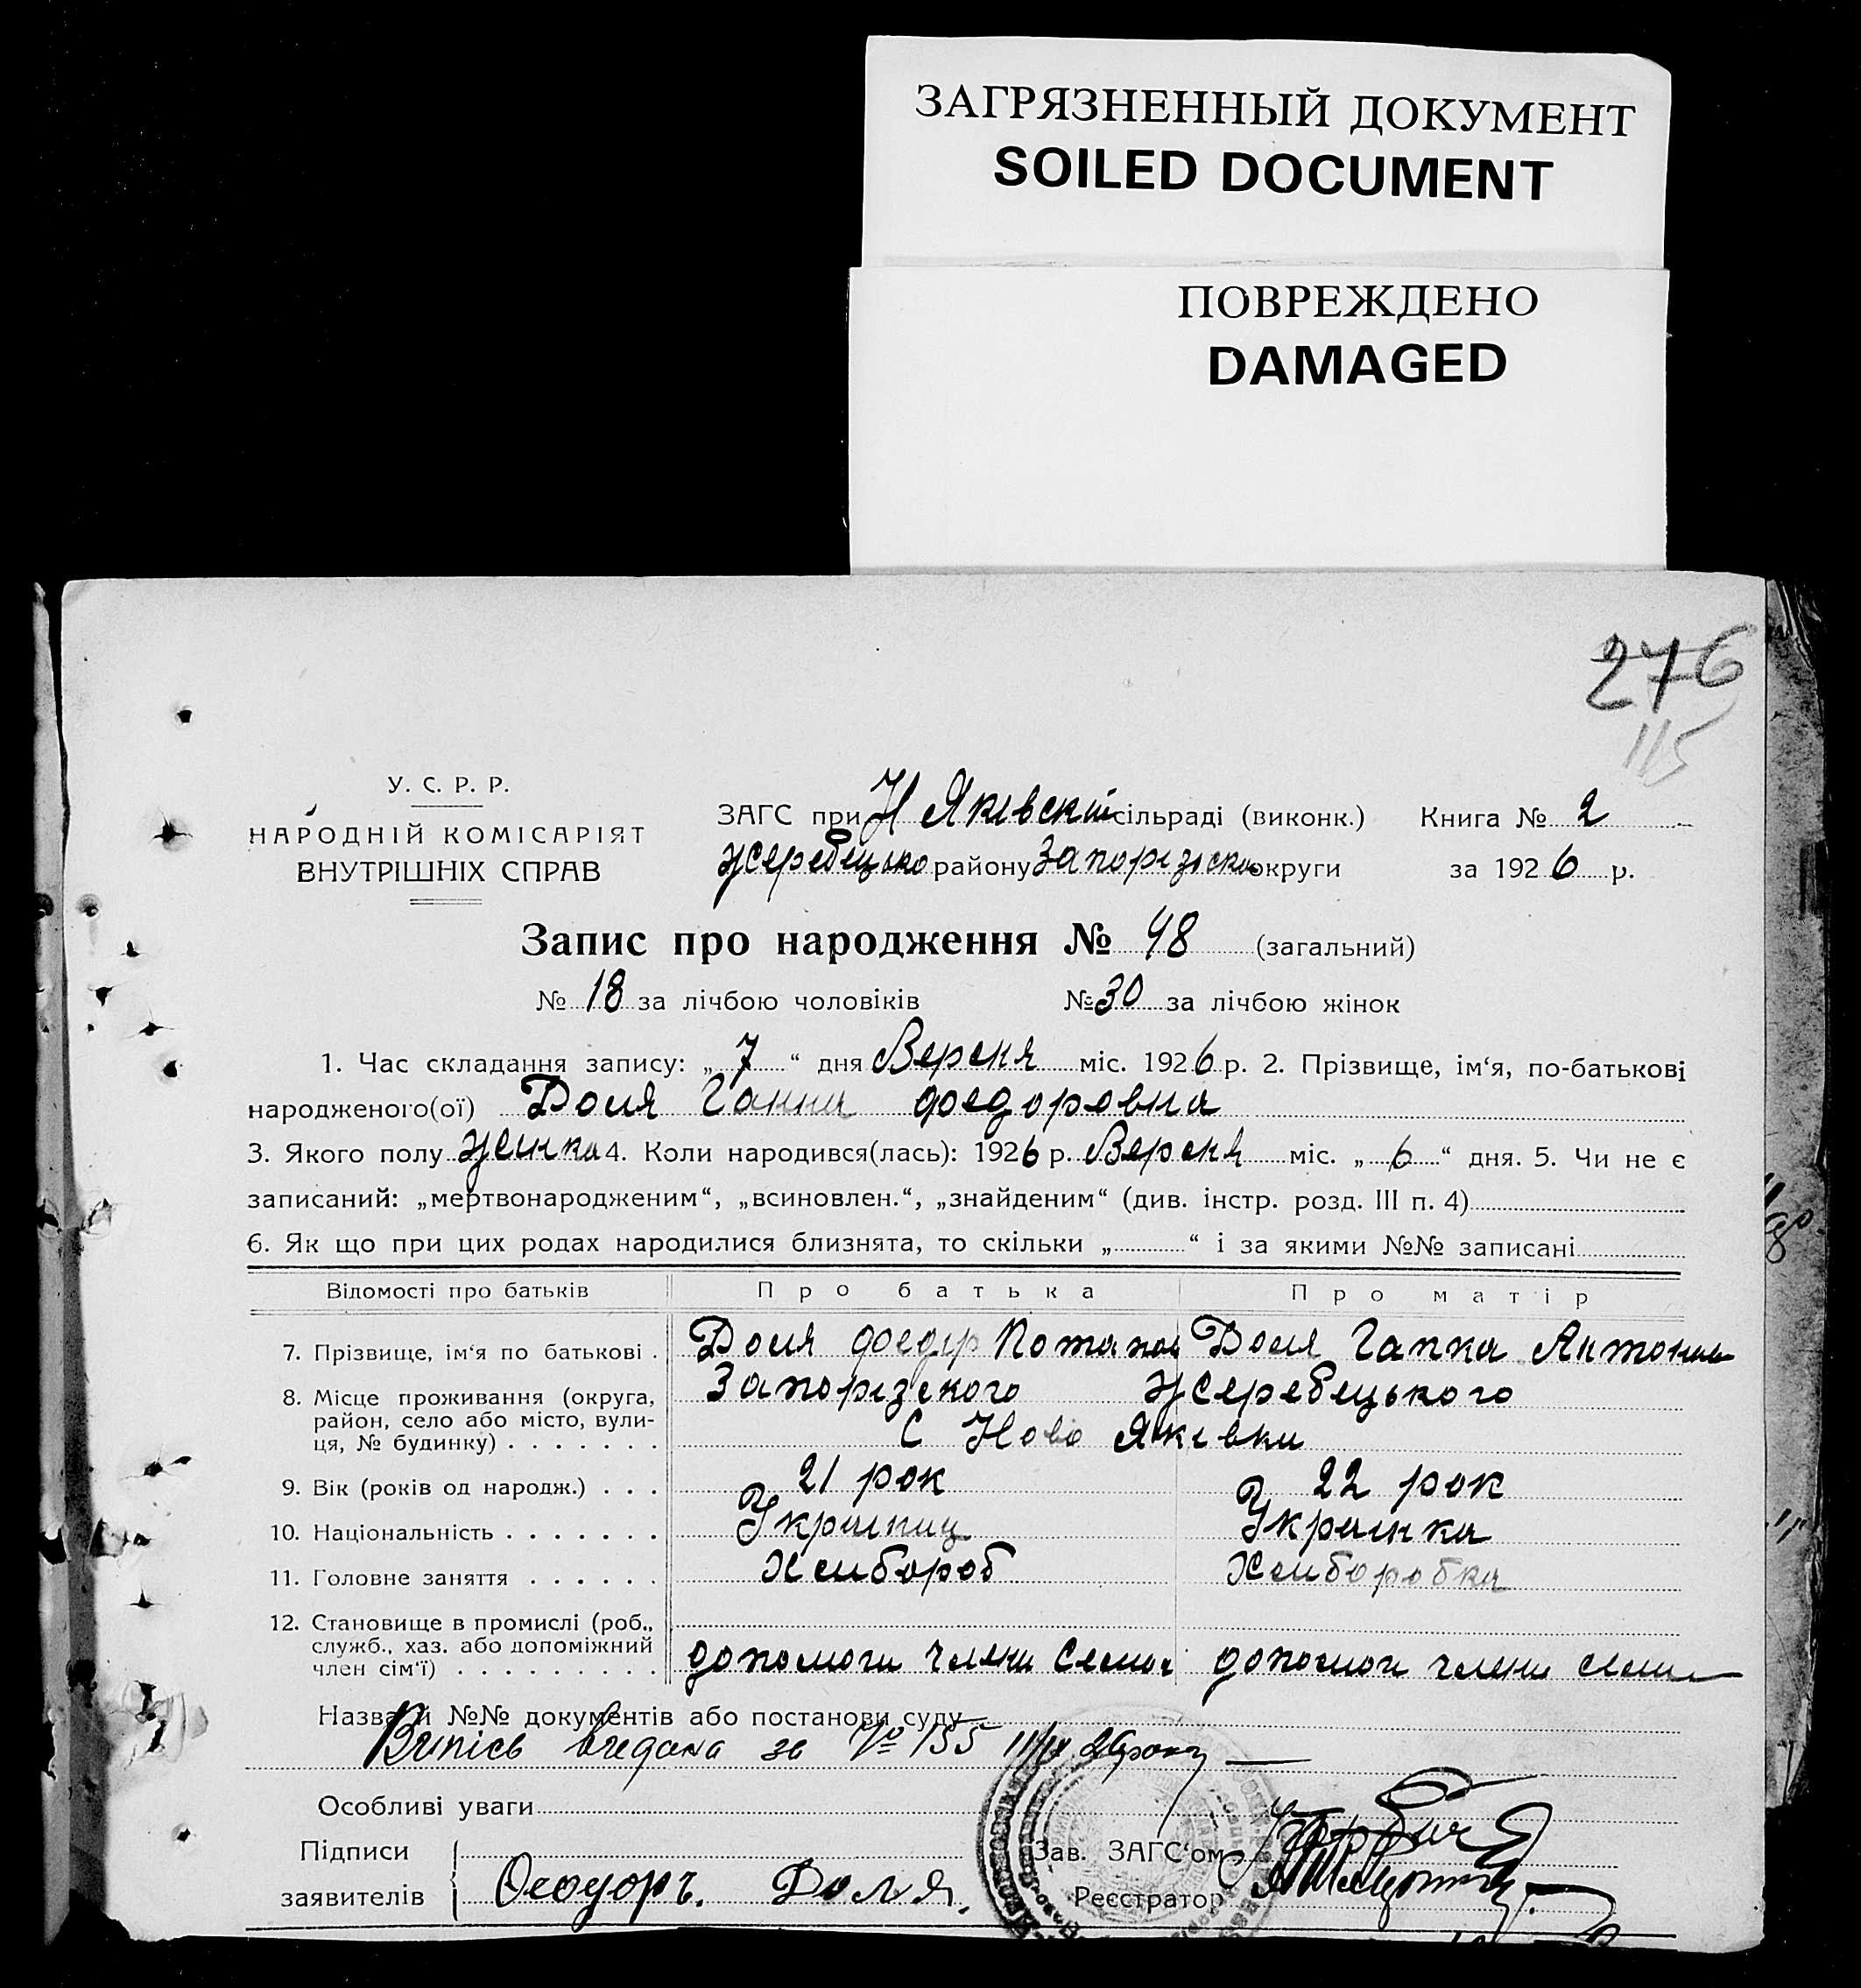 ЗАГРЯЗНЕННЫЙ ДОКУМЕНТ
SOILED DOCUMENT
ПОВРЕЖДЕНО
DAMAGED
276
115
У. С. Р. Р.
НАРОДНІЙ КОМІСАРІЯТ
ВНУТРІШНІХ СПРАВ
ЗАГС при Н Яківскій сільраді (виконк.) Книга № 2
Жеребецько району Запорізько округи за 1926 р.
Запис про народження № 48 (загальний)
№ 18 за лічбою чоловіків № 30 за лічбою жінок
1. Час складання запису: „ 7 “ дня Вересня міс. 1926 р. 2. Прізвище, ім‘я, по-батькові
народженого(ої) Доля Ганна Федоровна
3. Якого полу жінка 4. Коли народився(лась): 1926 р. Вересня міс. „ 6 “ дня. 5. Чи не є
записаний: „мертвонародженим“, „всиновлен.“, „знайденим“ (див. інстр. розд. III п. 4)
6. Як що при цих родах народилися близнята, то скільки „ “ і за якими №№ записані
Відомості про батьків Про батька Про матір
7. Прізвище, ім‘я по батькові . Доля Федір Потапов Доля Гапка Антонов
8. Місце проживання (округа, Запорізского Жеребецького
район, село або місто, вули-
ця, № будинку) . . . . . . . С Ново Яківки
9. Вік (років од народж.) . . . 21 рок 22 рок
10. Національність . . . . . . . Украіниц Украінка
11. Головне заняття . . . . . . Хлибороб Хлиборобка
12. Становище в промислі (роб.,
служб., хаз. або допоміжний
член сім‘ї) . . . . . . . . . допомоги члени семьи допомоги члени семьи
Назва й №№ документів або постанови суду
Випись видана за № 155 11/IX 26 року
Особливі уваги
Підписи
заявителів Ѳеодоръ. Доля.
Зав. ЗАГС‘ом
Реєстратор